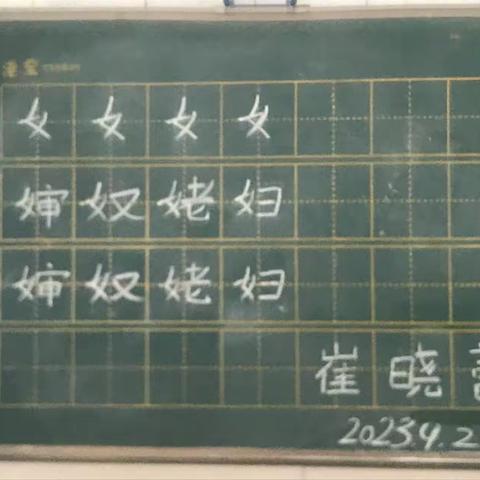 女 女 女 女
婶 奴 姥 妇
婶 奴 姥 妇
崔 晓
2023.4.2